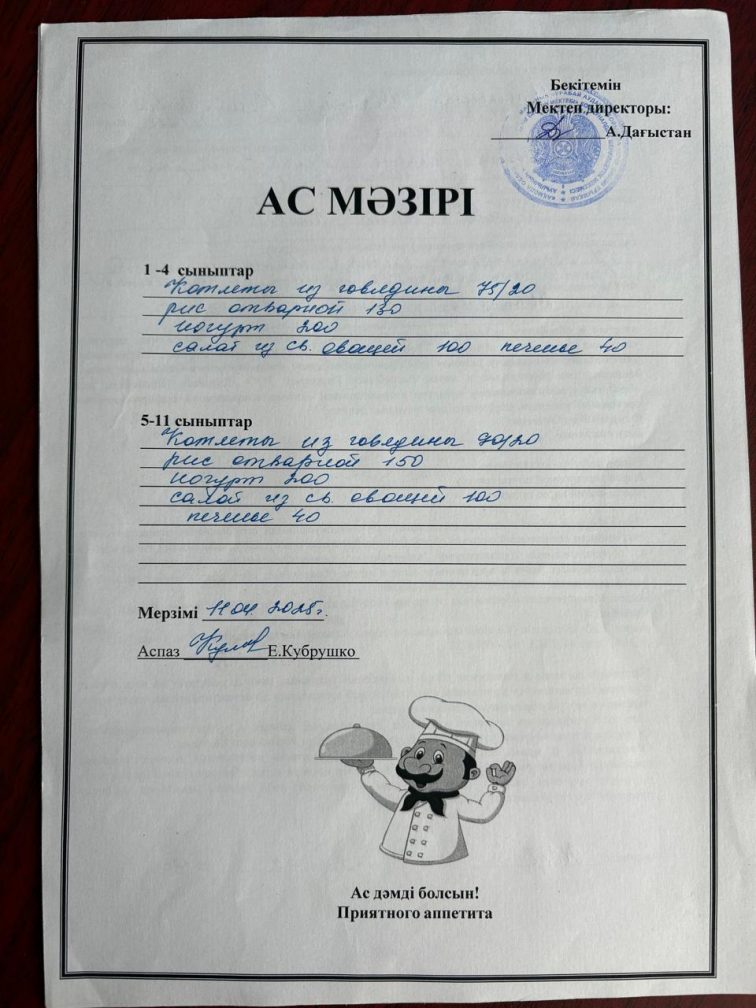 Бекітемін
Мектеп директоры:
А.Дағыстан
АС МӘЗІРІ
1 -4 сыныптар
Котлеты из говядины 75/20
рис отварной 130
йогурт 200
салат из св. овощей 100 печенье 40
5-11 сыныптар
Котлеты из говядины 90/20
рис отварной 150
йогурт 200
салат из св. овощей 100
печенье 40
Мерзімі 11 04. 2025г.
Аспаз Е.Кубрушко
Ас дәмді болсын!
Приятного аппетита